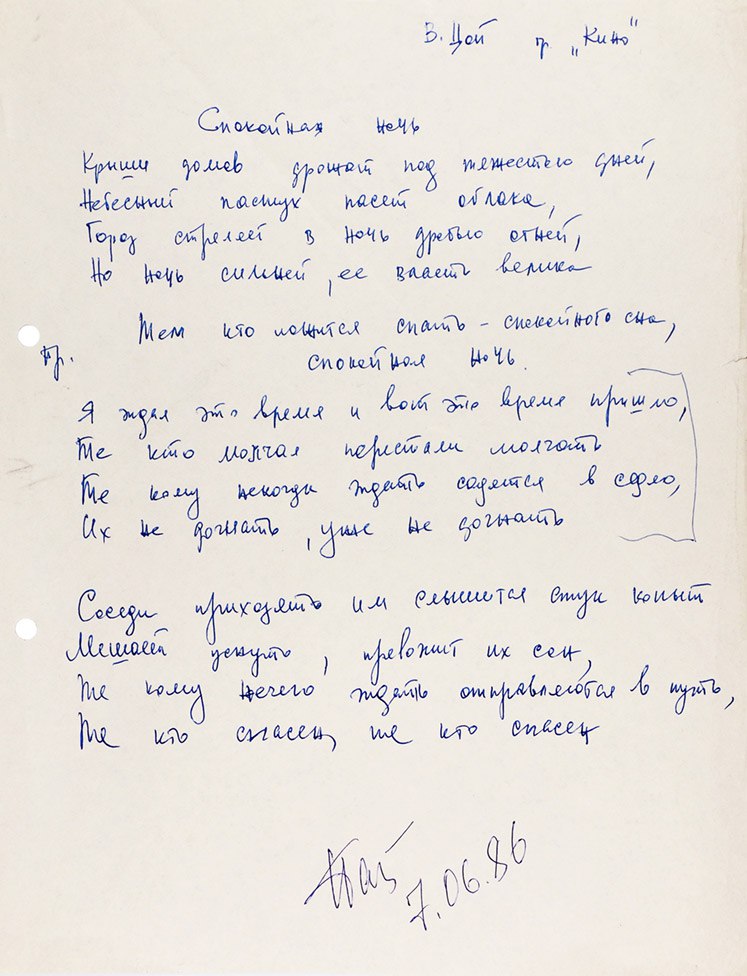 В. Цой гр „Кино"
Спокойная ночь
Крыши домов дрожат под тяжестью дней,
Небесный пастух пасет облака,
Город стреляет в ночь дробью огней,
Но ночь сильней, ее власть велика
Тем кто ложится спать - спокойного сна,
Пр.
спокойная ночь.
Я ждал это время и вот это время пришло,
Те кто молчал перестали молчать
Те кому некогда ждать садятся в седло,
Их не догнать, уже не догнать
Соседи приходят им слышится стук копыт
Мешает уснуть, тревожит их сон,
Те кому нечего ждать отправляются в путь,
Те кто спасен, те кто спасен
Цой
7.06.86